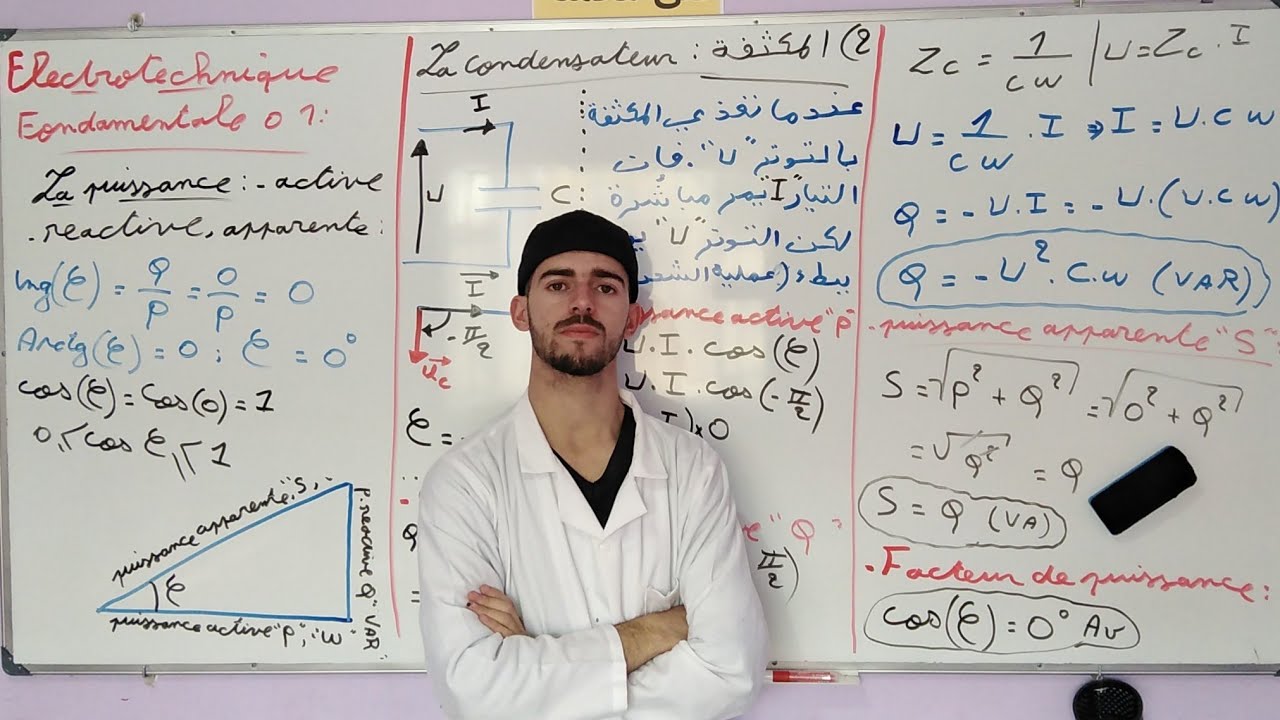 Electrotechnique
Fondamentale 0 1:
La puissance : - active
- reactive, apparente :
tng(φ) = Q/P = 0/P = 0
Arctg(φ) = 0 ; φ = 0°
cos(φ) = cos(0) = 1
cos φ
1
puissance apparente "S"
φ
puissance active "P", "W"
p. reactive Q "VAR"
La condensateur : المكثفة (2
I
U
C :
عندما نغذي المكثفة
بالتوتر "U". فان
التيار I يمر مباشرة
لكن التوتر "U"
ببطء (عملية الشحن
I
- π/2
Uc
puissance active "P"
U.I.cos(φ)
U.I.cos(-π/2)
I) × 0
φ = -
"Q"
Q
π/2)
=
Zc = 1/cw | U = Zc . I
U = 1/cw . I ⇒ I = U.cw
Q = -U.I = -U.(U.cw)
Q = -U².C.w (VAR)
- puissance apparente "S"
S = √P² + Q² = √0² + Q²
= √Q² = Q
S = Q (VA)
- Facteur de puissance :
cos(φ) = 0° Av